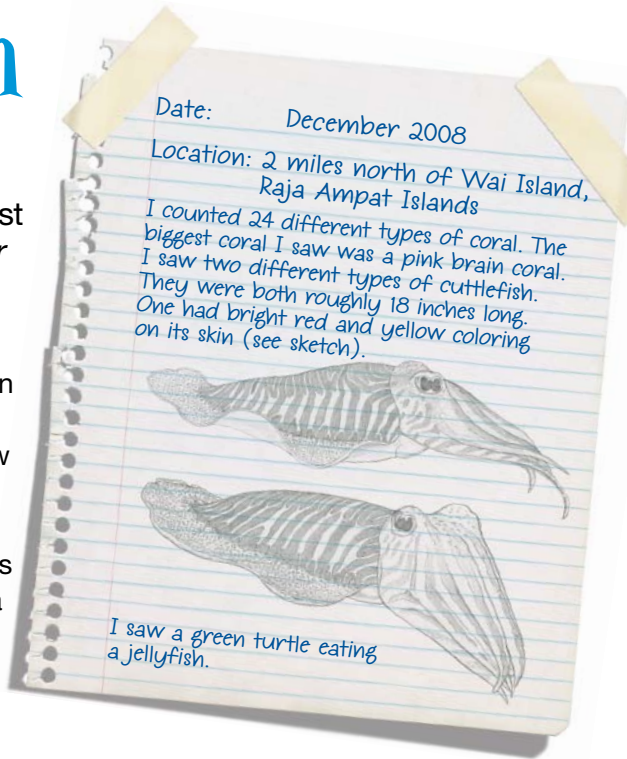 n
st
r
n
w
s
a
Date: December 2008
Location: 2 miles north of Wai Island,
Raja Ampat Islands
I counted 24 different types of coral. The
biggest coral I saw was a pink brain coral.
I saw two different types of cuttlefish.
They were both roughly 18 inches long.
One had bright red and yellow coloring
on its skin (see sketch).
I saw a green turtle eating
a jellyfish.